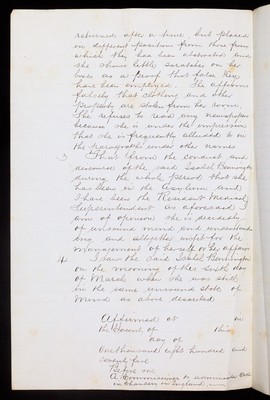 returned after a time but placed
in different position from those from
which they had been abstracted and
she shows little scratches on her
boxes as a proof that false keys
have been employed. She affirms
falsely that clothing and other
property are stolen from her room.
She refuses to read any newspaper
because she is under the impression
that she is frequently alluded to in
the paragraphs under other names
3 That from the conduct and
discourse of the said Isabel Bennington
during the whole period that she
has been in the Asylum and
I have been the Resident Medical
Superintendent as aforesaid I
am of opinion she is decidedly
of unsound mind and understand
ing and altogether unfit for the
management of herself or her affairs
4 I saw the said Isabel Bennington
on the morning of the sixth day
of March when she was still
in the same unsound state of
mind as above described
Affirmed at in
the County of this
day of
One thousand eight hundred and
seventy five
Before me
A Commissioner to administer Oaths
in Chancery in England